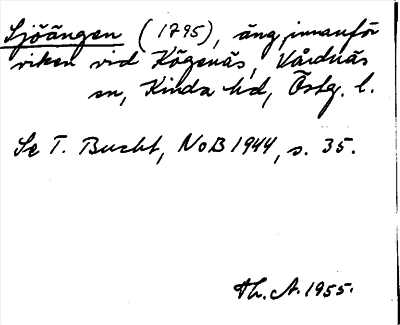 Sjöängen (1795), äng innanför
viken vid Högenäs, Vårdnäs
sn, Kinda hd, Östg. l.
Se T. Bucht, NoB 1944, s. 35.
Th. A. 1955.